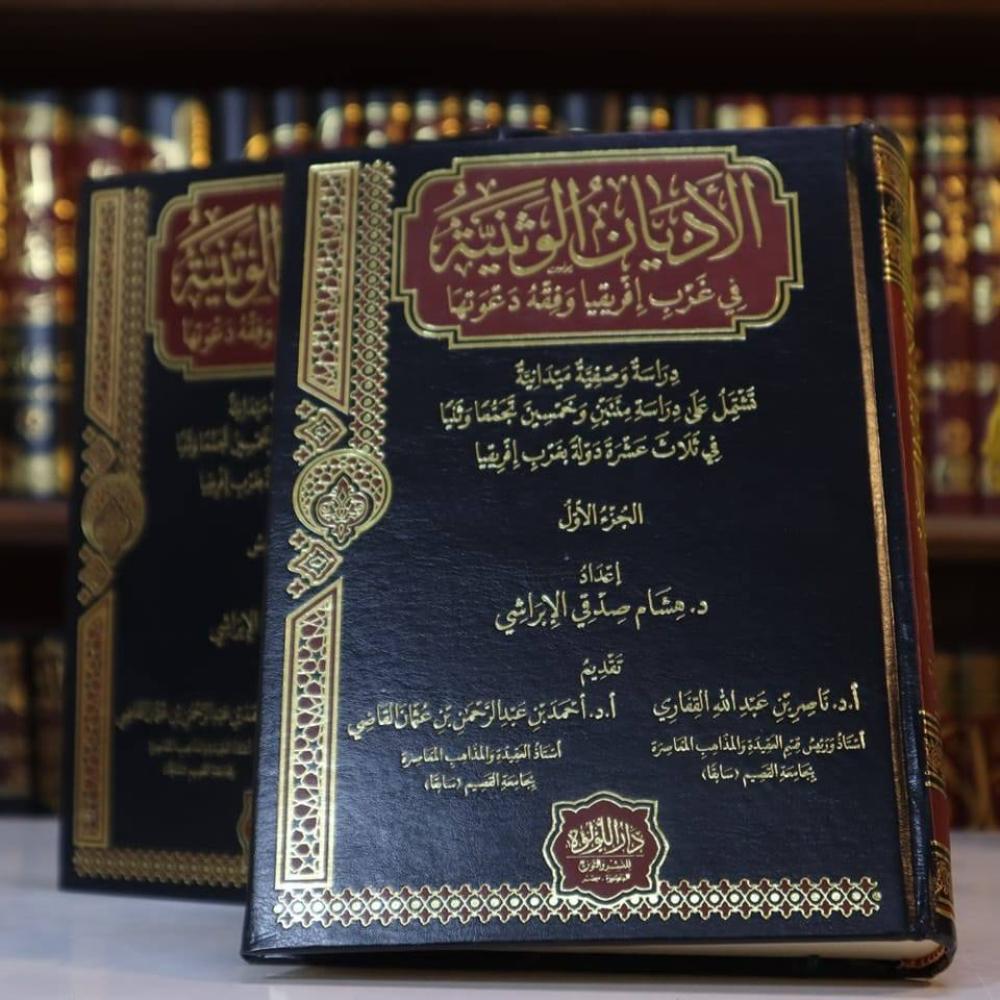 الأَدْيَانُ الوَثَنِيَّةُ
فِي غَرْبِ إِفْرِيقِيا وَفِقْهُ دَعْوَتِهَا
دِرَاسَةٌ وَصْفِيَّةٌ مَيْدَانِيَّةٌ
تَشْتَمِلُ عَلَى دِرَاسَةِ مِئَتَيْنِ وَخَمْسِينَ تَجَمُّعًا وَثَنِيًا
فِي ثَلَاثَ عَشْرَةَ دَوْلَةً بِغَرْبِ إِفْرِيقِيا
الجُزْءُ الأَوَّلُ
إِعْدَادُ
د. هِشَام صِدْقِي الإِبْرَاشِي
تَقْدِيمُ
أ.د. نَاصِر بْنِ عَبْدِ اللهِ القِفَارِي
أُسْتَاذُ وَرَئِيسُ قِسْمِ العَقِيدَةِ وَالمَذَاهِبِ المُعَاصِرَةِ
بِجَامِعَةِ القَصِيمِ (سَابِقًا)
أ.د. أَحْمَد بْنِ عَبْدِ الرَّحْمَنِ بْنِ عُثْمَانَ القَاضِي
أُسْتَاذُ العَقِيدَةِ وَالمَذَاهِبِ المُعَاصِرَةِ
بِجَامِعَةِ القَصِيمِ (سَابِقًا)
دَارُ اللُّؤْلُؤَة
للنشر والتوزيع